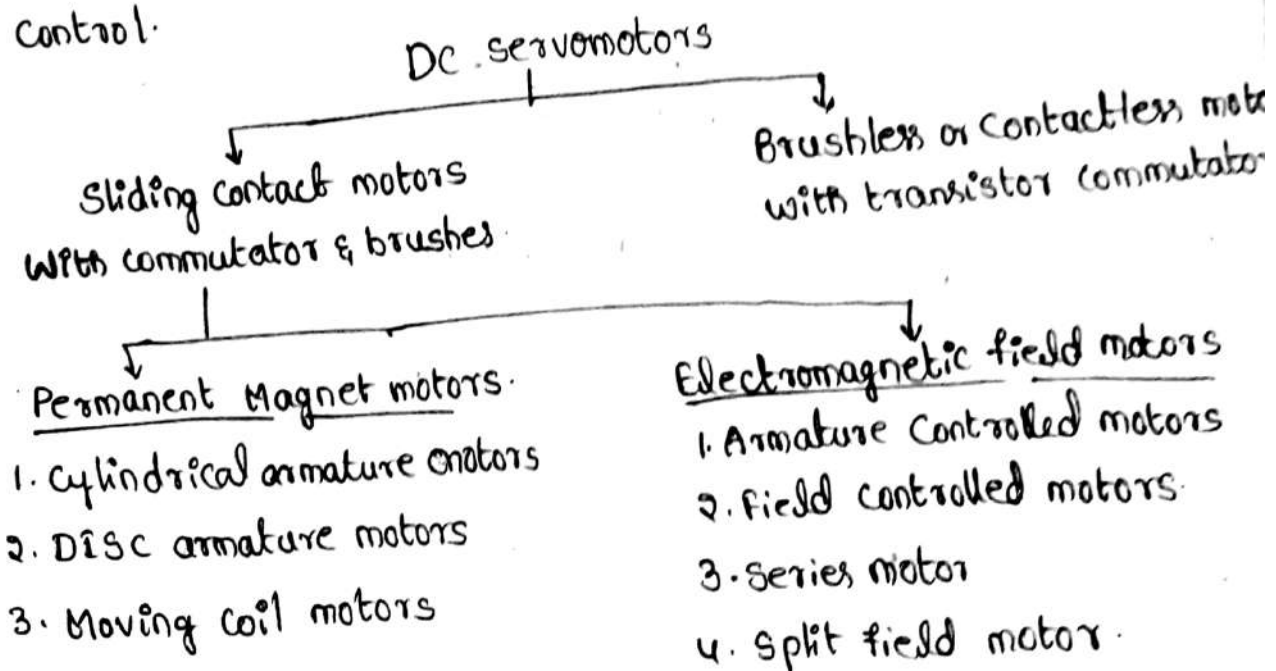 Control.
DC. servomotors
Sliding contact motors
With commutator & brushes.
Brushless or Contactless
with transistor
Permanent Magnet motors.
1. Cylindrical armature motors
2. DISC armature motors
3. Moving coil motors
Electromagnetic field motors
1. Armature Controlled motors
2. Field controlled motors.
3. Series motor
4. Split field motor.